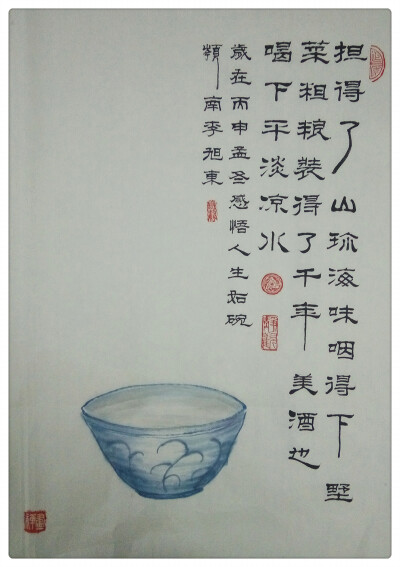 担得了山珍海味咽得下野
菜粗粮装得了千年美酒也
喝下平淡凉水
歲在丙申孟冬感悟人生如碗
南李旭東